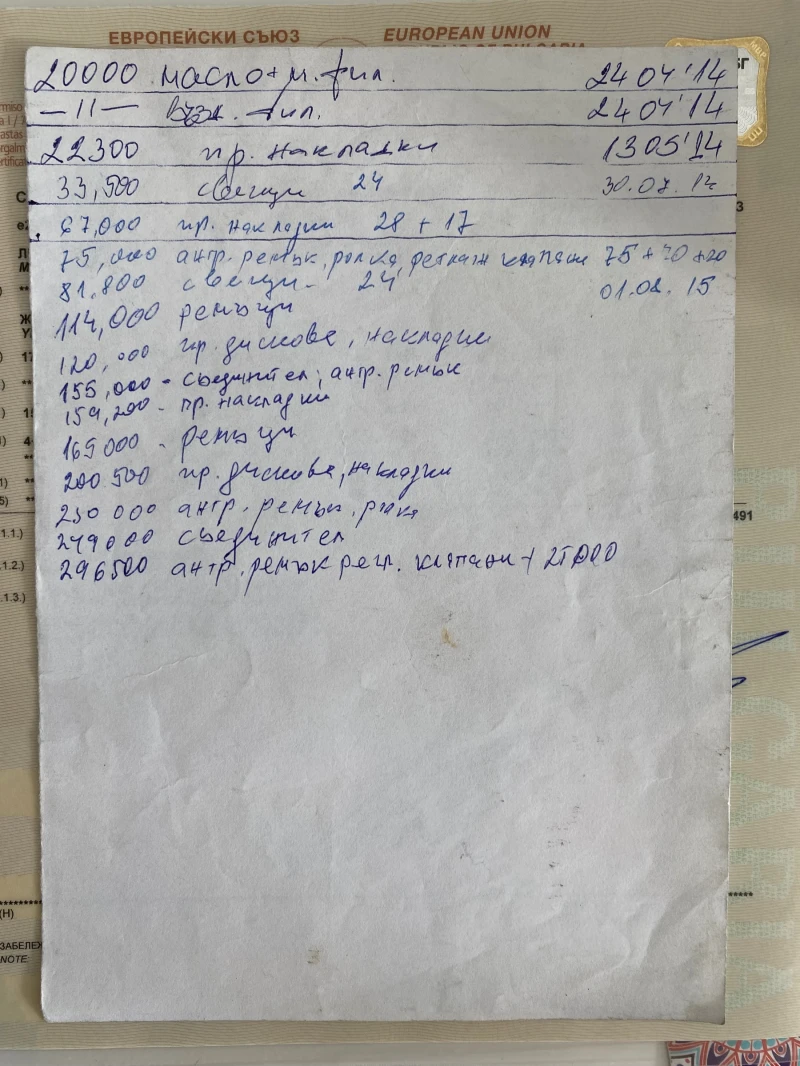 ЕВРОПЕЙСКИ СЪЮЗ
EUROPEAN UNION
20000 масло + м. фил. 24 04'14
—11— възд. фил. 24 04'14
22300 пр. накладки 13 05'14
33,500 свещи 24 30.07.14
67,000 пр. накладки 28 + 17
75,000 анг. ремък, ролка, регулаж клапани 75 + 70 + 20
81.800 свещи - 24 01.02.15
114,000 ремъци
120,000 пр. дискове, накладки
155,000 - съединител; анг. ремък
159,200 - пр. накладки
165000 - ремъци
200 500 пр. дискове, накладки
230 000 анг. ремък, ролка
249000 съединител
296500 анг. ремък регл. клапани
491
1.1.)
1.2.)
1.3.)
(H)
ЗАБЕЛЕЖ
NOTE: